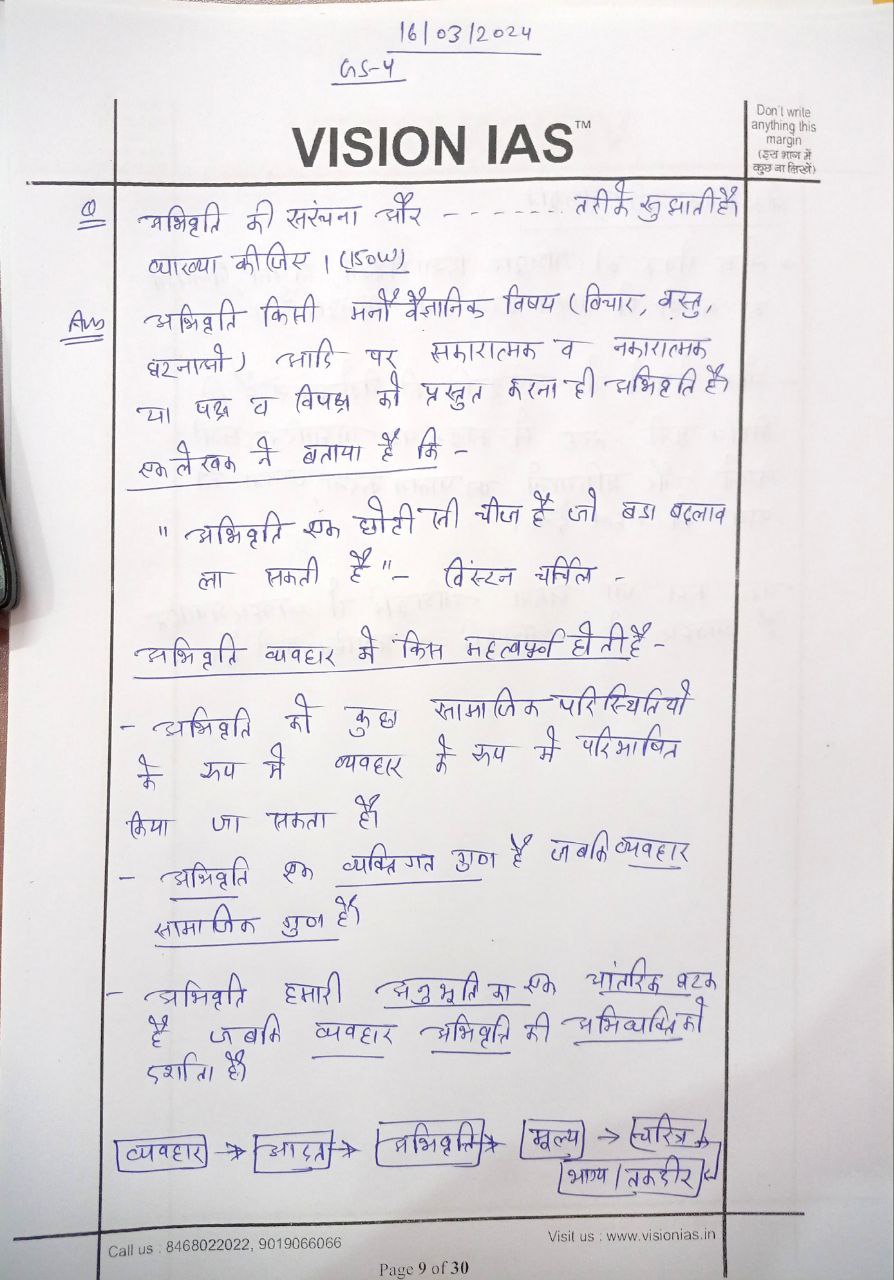 16/03/2024
GS-4
Don't write
anything this
margin
(इस भाग में
कुछ ना लिखें)
VISION IAS™
Q अभिवृति की सरंचना और - - - - - - - - तरीके सुझाती है।
व्याख्या कीजिए। (150W)
Ans अभिवृति किसी मनौवैज्ञानिक विषय (विचार, वस्तु,
घटनाओ) आदि पर सकारात्मक व नकारात्मक
या पक्ष व विपक्ष को प्रस्तुत करना ही अभिवृति है।
एक लेखक ने बताया है कि -
" अभिवृति एक छोटी सी चीज है जो बडा बदलाव
ला सकती है" - विंस्टन चर्चिल -
अभिवृति व्यवहार मे किस महत्वपूर्ण होती है -
- अभिवृति को कुछ सामाजिक परिस्थितियो
के रूप मे व्यवहार के रूप मे परिभाषित
किया जा सकता है।
- अभिवृति एक व्यक्तिगत गुण है जबकि व्यवहार
सामाजिक गुण है।
- अभिवृति हमारी अनुभूति का एक आंतरिक घटक
है जबकि व्यवहार अभिवृत्ति की अभिव्यक्ति को
दर्शाता है।
व्यवहार → आदत → अभिवृति → मूल्य → चरित्र
भाग्य / तकदीर
Call us : 8468022022, 9019066066
Visit us : www.visionias.in
Page 9 of 30